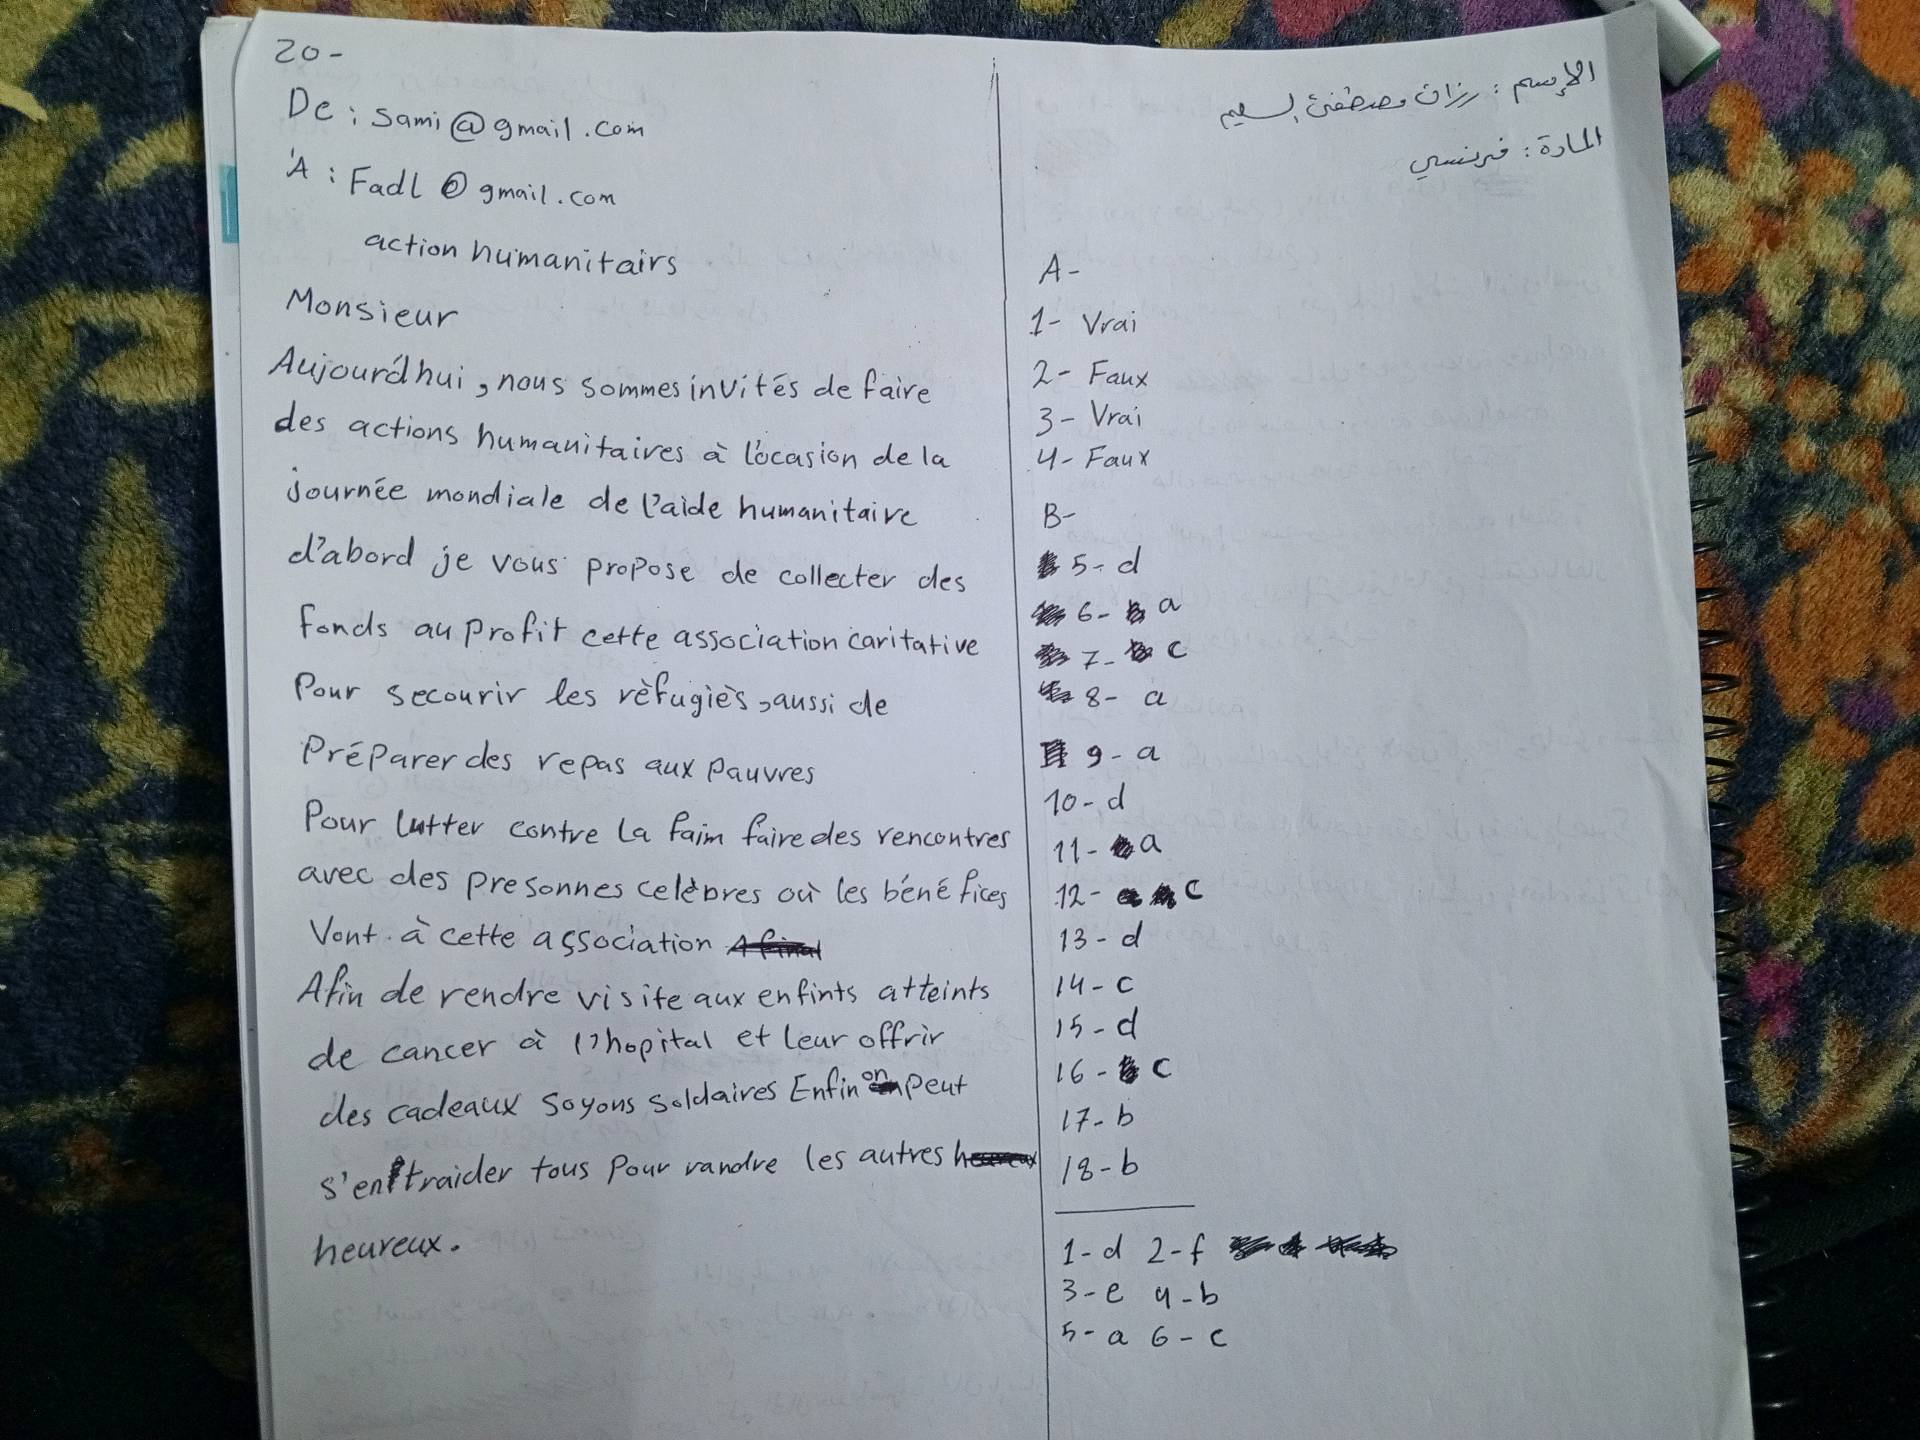 الإسم : رزان مصطفى السليم
المادة : فرنسي
A-
1- Vrai
2- Faux
3- Vrai
4- Faux
B-
5- d
6- a
7- c
8- a
9- a
10- d
11- a
12- c
13- d
14- c
15- d
16- c
17- b
18- b
1- d 2- f
3- e 4- b
5- a 6- c
20-
De : sami@gmail.com
À : Fadl@gmail.com
action humanitairs
Monsieur
Aujourd'hui, nous sommes invités de faire
des actions humanitaires à l'ocasion de la
journée mondiale de l'aide humanitaire
d'abord je vous propose de collecter des
fonds au profit cette association caritative
Pour secourir les rèfugiès, aussi de
Préparer des repas aux pauvres
Pour lutter contre la faim faire des rencontres
avec des presonnes celèbres où les bénéfices
Vont à cette association
Afin de rendre visite aux enfints atteints
de cancer à l'hopital et leur offrir
des cadeaux soyons soldaires Enfin on peut
s'entraider tous pour randre les autres
heureux.